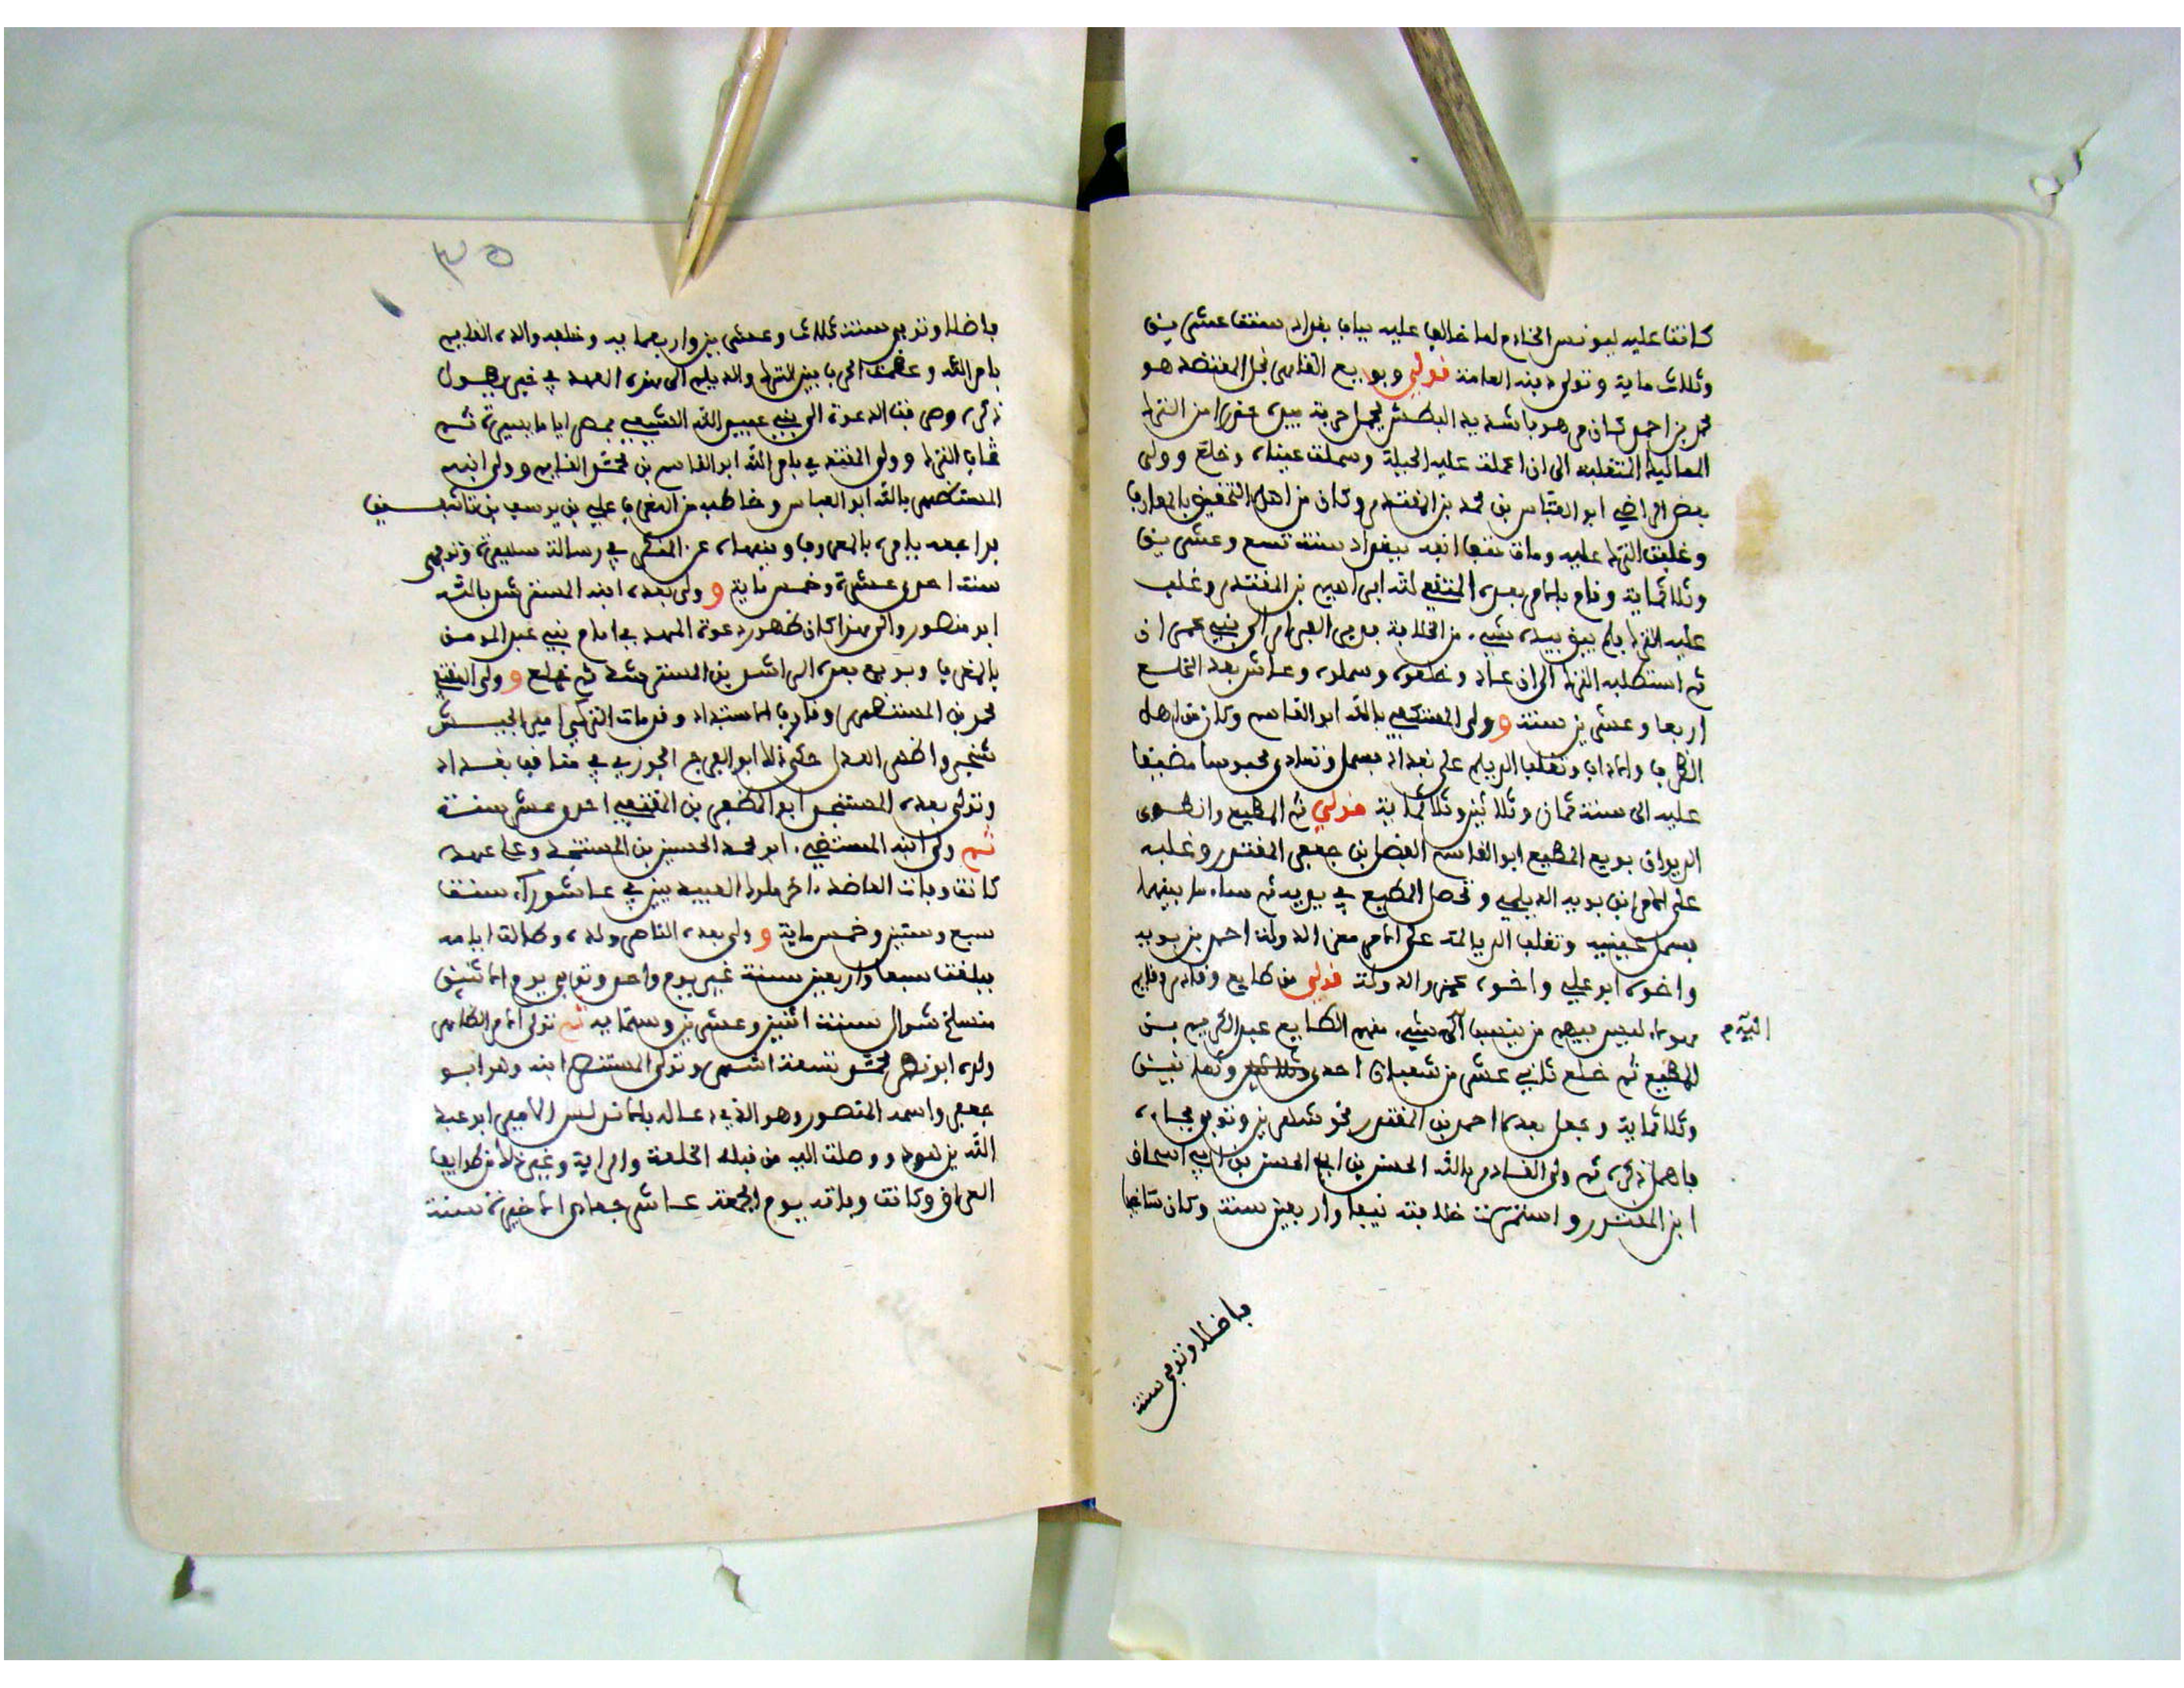 كانت عليه ليونس الخادم لما خالف عليه بباب بغداد سنة عشرين
وثلاث ماية وتولى دبنه العامة قولي وبويع القاهر نجل المعتضد هو
محمد بن احمد كان مرهوبا شديد البطش يحمل حربة بيده حذرا من الترك
المماليك المتغلبة الى ان اعملت عليه الحيلة وسملت عيناه وخلع وولى
بعض الراضي ابو العباس بن محمد بن المقتدر وكان من اهل التحقيق بالمعارف
وغلبت الترك عليه ومات حتف انفه ببغداد سنة تسع وعشرين
وثلاثماية وقام بالامر بعده المتقي لله ابراهيم بن المقتدر وغلب
عليه الترك فلم يبق بيده شيء من الخلافة ففر من العراق الى بني حمدان
ثم استطلبه الترك الى ان عاد وخلعوه وسملوه وعاش بعد الخلع
اربعا وعشرين سنة وولى المستكفي بالله ابو القاسم وكان من اهل
الظرف والاداب وتغلب الديلم على بغداد فسمل وتمادى محبوسا مضيقا
عليه الى سنة ثمان وثلاثين وثلاثماية قولي ثم المطيع وانطوى
الديوان بويع المطيع ابو القاسم الفضل بن جعفر المقتدر وغلب
على الامر ابن بويه الديلمي وتحصل المطيع في يديه ثم ساء ما بينهما
فسمل عينيه وتغلب الديالمة على الامر معز الدولة احمد بن بويه
واخوه ابو علي واخوه عضد الدولة قولي من طايع وقادر وقايم
فهولاء ليس فيهم من ينسب الى شيء منهم الطايع عبد الكريم بن
اليهم
المطيع ثم خلع ثاني عشر من شعبان احدى وثلاثين وثمانين
وثلاثماية وجعل بعده احمد بن المقتدر نحو شهرين وتوفي فجاءه
باهمال ذكره ثم ولى القادر بالله الحسن بن ابي الحسن بن ابي اسحاق
ابن المقتدر واستمرت خلافته نيفا واربعين سنة وكان شافعيا
فاضلا وتوفي سنة
٣٥
فاضلا وتوفي سنة ثلاث وعشرين واربعماية وخلفه والده القايم
بامر الله وعظمت الحرب بين الترك والديلم الى هذه العهد في خبر يهول
ذكره وصرفت الدعوة الى بني عبيد الله الشيعي بمصر اياما يسيرة ثم
غاب الترك وولى المقتدي بامر الله ابو القاسم بن محمد القايم وولى ابنه
المستظهر بالله ابو العباس وخاطبه من المغرب علي بن يوسف بن تاشفين
فراجعه يامره بالمعروف وينهاه عن المنكر في رسالة بليغة وتوفي
سنة احدى عشرة وخمس ماية و ولى بعده ابنه المسترشد بالله
ابو منصور والى هذا كان ظهور دعوة المهدي في ايام بني عبد المومن
بالمغرب وبويع بعده الراشد بن المسترشد ثم خلع و ولى المقتفي
محمد بن المستظهر وقارب الاستبداد وقد مات التركي امير الجيش
سنجر واظهر العدل حكى ذلك ابو الفرج الجوزي في مناقب بغداد
وتولى بعده المستنجد ابو المظفر بن المقتفي احدى عشر سنة
ثم ولى ابنه المستضيء ابو محمد الحسن بن المستنجد وعلى عهده
كانت وفاة العاضد اخر ملوك العبيديين في عاشوراء سنة
سبع وستين وخمس ماية و ولى بعده الناصر ولده وطالت ايامه
فبلغت سبعا واربعين سنة غير يوم واحد وتوفي يوم الاثنين
منسلخ شوال سنة اثنين وعشرين وستماية ثم تولى الامر الظاهر
ولده ابو نصر محمد تسعة اشهر وتولى المستنصر ابنه وهو ابو
جعفر واسمه المنصور وهو الذي دعا له بالاندلس الامير ابو عبد
الله بن هود ووصلت اليه من قبله الخلعة والراية وغير ذلك من طوايف
العراق وكانت وفاته يوم الجمعة عاشر جمادى الاخيرة سنة